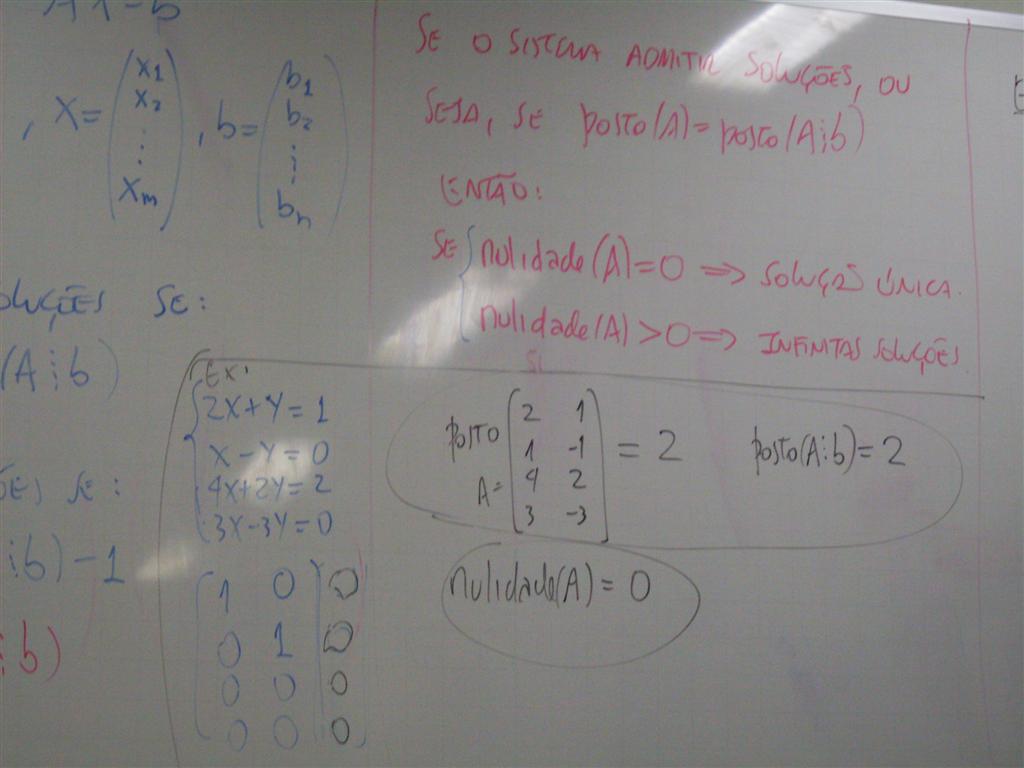 AX=b
, X= (x1 x2 ⋮ xm) , b= (b1 b2 ⋮ bn)
OLUÇÕES SE:
(A⋮b)
ÕES SE:
⋮b)-1
⋮b)
SE O SISTEMA ADMITIR SOLUÇÕES, OU
SEJA, SE posto(A)=posto(A⋮b)
ENTÃO:
SE { nulidade(A)=0 => SOLUÇÃO ÚNICA.
nulidade(A)>0 => INFINITAS SOLUÇÕES
Ex:
2X+Y=1
X-Y=0
4X+2Y=2
3X-3Y=0
1 0 0
0 1 0
0 0 0
0 0 0
posto A= [2 1
1 -1
4 2
3 -3] = 2
posto(A⋮b)=2
nulidade(A)=0